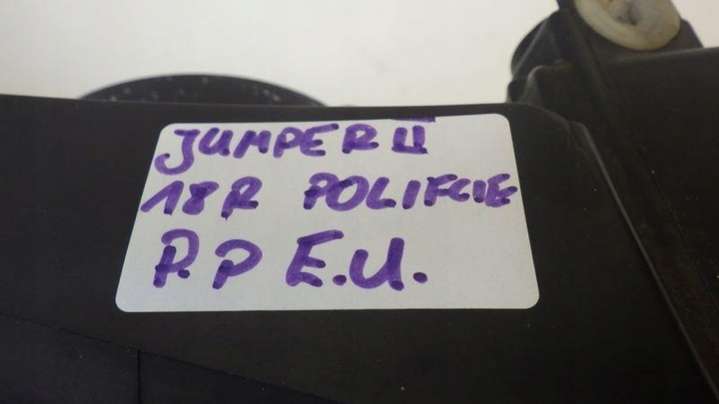 JUMPER II
18R POLIFCIE
P.P E.U.